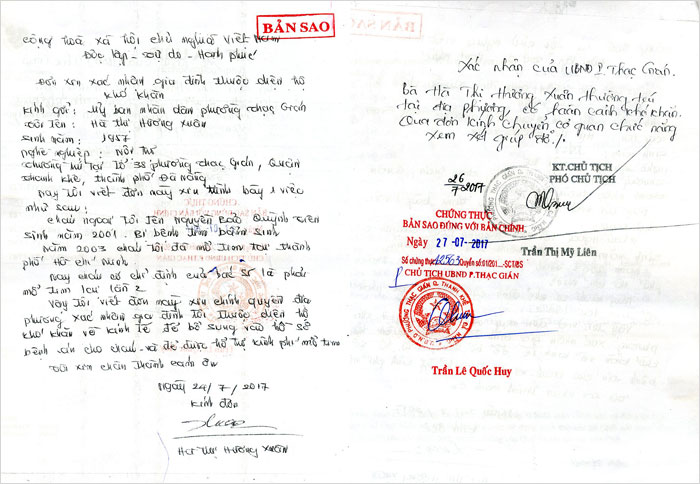 BẢN SAO
cộng hoà xã hội chủ nghĩa việt nam
Độc lập - tự do - Hạnh phúc
Đơn xin xác nhận gia đình thuộc diện hộ
khó khăn
kính gửi : uỷ ban nhân dân phường thạc Gián
tôi tên : Hà thị Hương xuân
sinh năm : 1957
nghề nghiệp : Nội trợ
thường trú tại tổ 38 phường thạc Gián, Quận
thanh khê, thành phố Đà Nẵng
nay tôi viết đơn này xin trình bày 1 việc
như sau :
cháu ngoại tôi tên Nguyễn Bảo Quỳnh tiên
sinh năm 2001. Bị bệnh tim bẩm sinh
năm 2003 cháu tôi đã mổ tim tại thành
phố Hồ chí minh
nay cháu có chỉ định của bác sĩ là phải
mổ tim lại lần 2
vậy tôi viết đơn này xin chính quyền địa
phương xác nhận gia đình tôi thuộc diện hộ
khó khăn về kinh tế để bổ sung vào hồ sơ
bệnh án cho cháu và để được hỗ trợ kinh phí mổ tim
tôi xin chân thành cảm ơn
ngày 24/7/2017
kính đơn
Hà Thị Hương xuân
Xác nhận của UBND P. Thạc Gián.
Bà Hà Thị Hương Xuân thường trú
tại địa phương, có hoàn cảnh khó khăn.
Của đơn kính chuyển cơ quan chức năng
xem xét giúp đỡ ./.
26
7-2017
KT.CHỦ TỊCH
PHÓ CHỦ TỊCH
Trần Thị Mỹ Liên
CHỨNG THỰC
BẢN SAO ĐÚNG VỚI BẢN CHÍNH.
Ngày 27-07-2017
Số chứng thực 12563 Quyển số:01/201...-SCT/BS
P CHỦ TỊCH UBND P.THẠC GIÁN
Trần Lê Quốc Huy